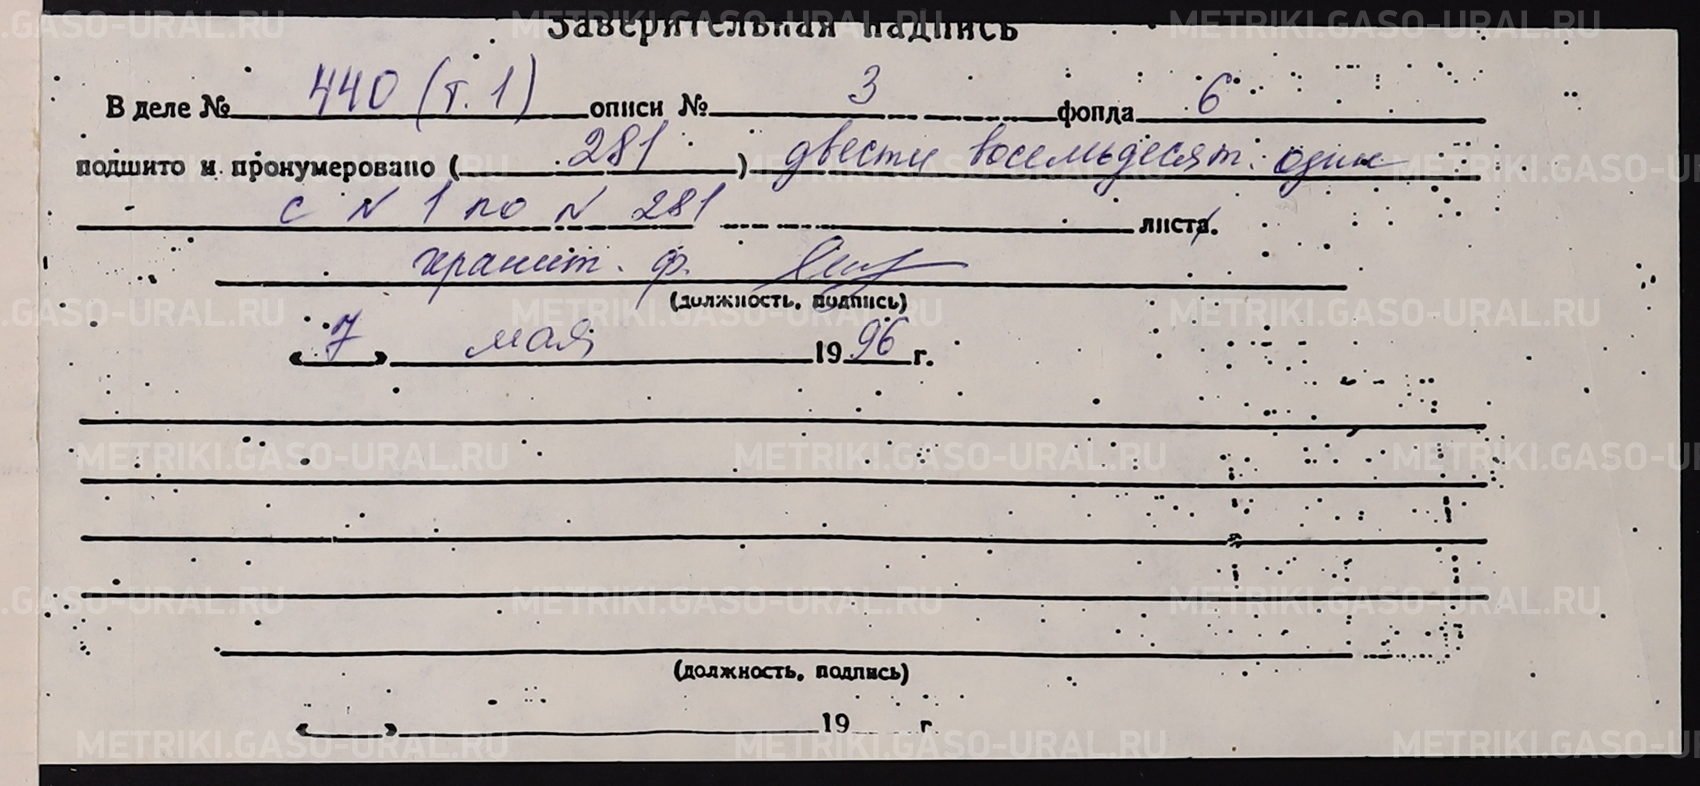 Заверительная надпись
В деле № 440 (т. 1) описи № 3 фонда 6
подшито и пронумеровано ( 281 ) двести восемьдесят один
с N 1 по N 281 листа.
хранит. ф.
(должность, подпись)
« 7 » мая 19 96 г.
(должность, подпись)
« » 19 г.
METRIKI.GASO-URAL.RU